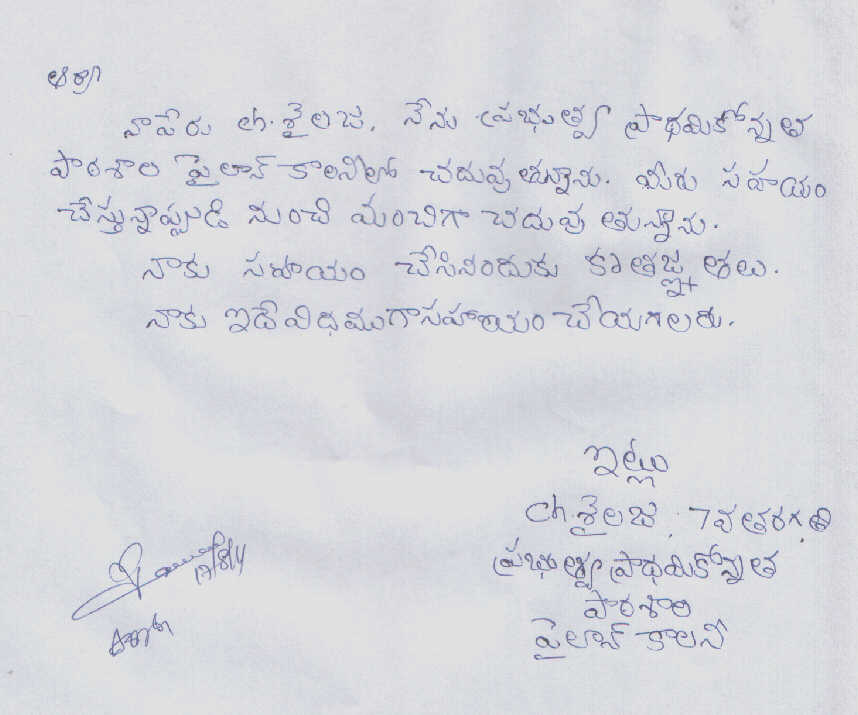 ఆర్యా
నాపేరు ch. శైలజ, నేను ప్రభుత్వ ప్రాథమికోన్నత
పాఠశాల పైలాన్ కాలనీలో చదువుతున్నాను. మీరు సహాయం
చేస్తున్నప్పటి నుంచి మంచిగా చదువు తున్నాను.
నాకు సహాయం చేసినందుకు కృతజ్ఞతలు.
నాకు ఇదేవిధముగా సహాయం చేయగలరు.
ఇట్లు
ch. శైలజ, 7వ తరగతి
ప్రభుత్వ ప్రాథమికోన్నత
పాఠశాల
పైలాన్ కాలనీ